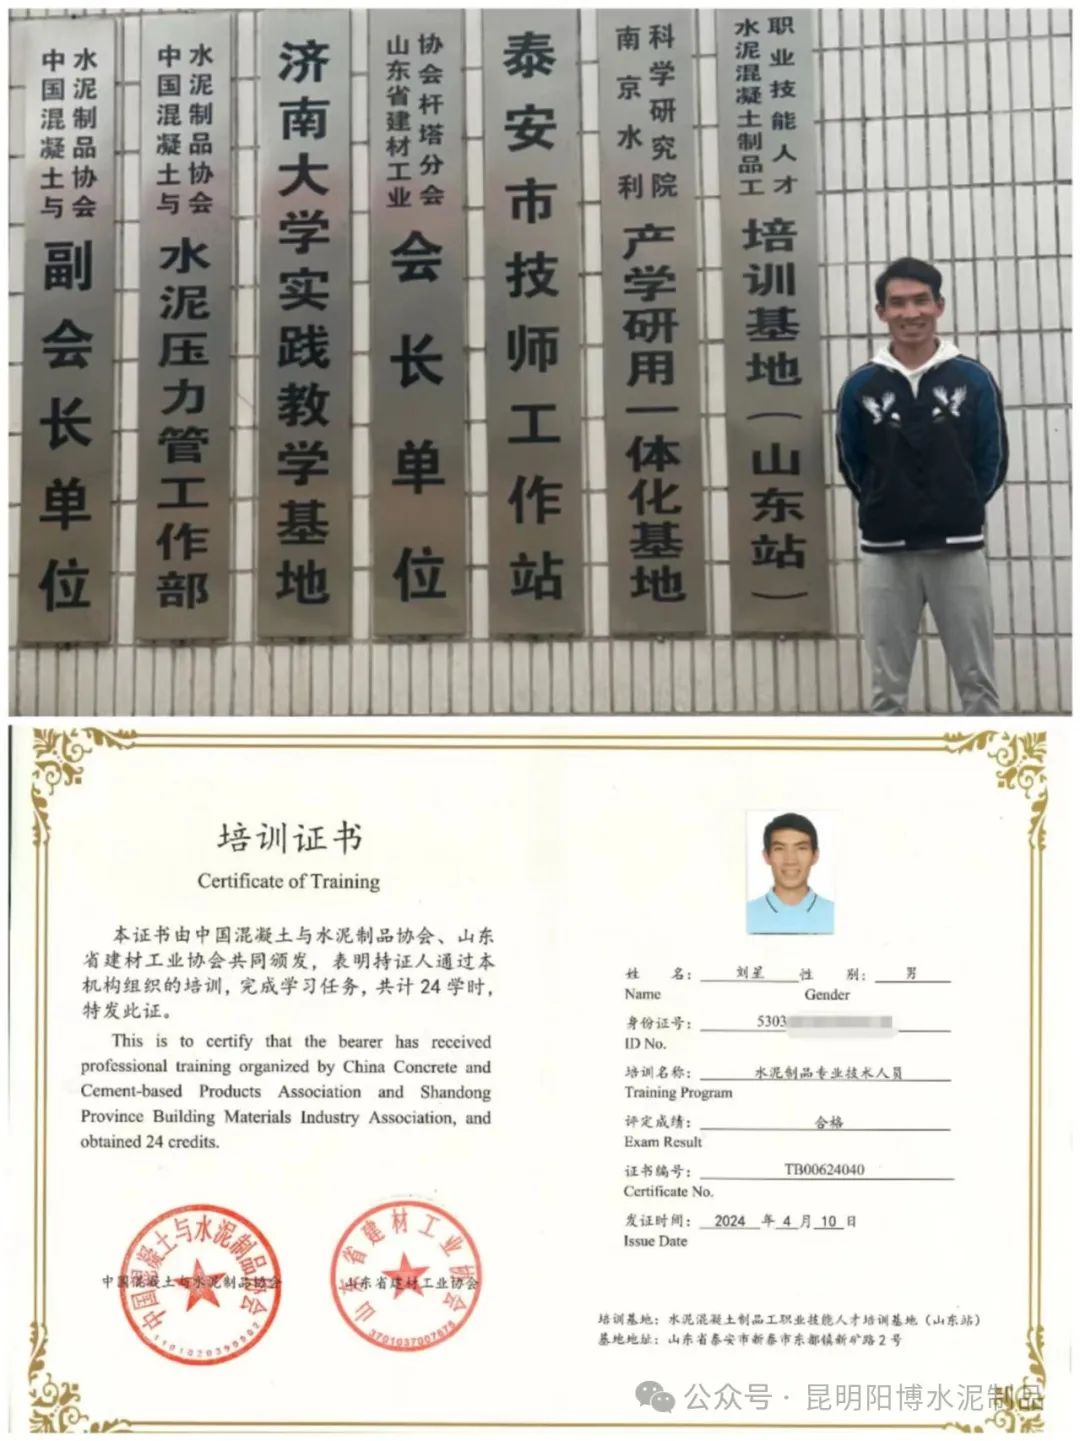 中国混凝土与
水泥制品协会
副会长单位
中国混凝土与
水泥制品协会
水泥压力管工作部
济南大学实践教学基地
山东省建材工业
协会杆塔分会
会长单位
泰安市技师工作站
南京水利
科学研究院
产学研用一体化基地
水泥混凝土制品工
职业技能人才
培训基地(山东站)
培训证书
Certificate of Training
本证书由中国混凝土与水泥制品协会、山东
省建材工业协会共同颁发，表明持证人通过本
机构组织的培训，完成学习任务，共计24学时，
特发此证。
This is to certify that the bearer has received
professional training organized by China Concrete and
Cement-based Products Association and Shandong
Province Building Materials Industry Association, and
obtained 24 credits.
中国混凝土与水泥制品协会
中国混凝土与水泥制品协会
山东省建材工业协会
山东省建材工业协会
3701037007675
姓 名： 刘星 性 别： 男
Name Gender
身份证号： 5303
ID No.
培训名称： 水泥制品专业技术人员
Training Program
评定成绩： 合格
Exam Result
证书编号： TB00624040
Certificate No.
发证时间： 2024 年 4 月 10 日
Issue Date
培训基地：水泥混凝土制品工职业技能人才培训基地（山东站）
基地地址：山东省泰安市新泰市东都镇新矿路2号
公众号·昆明阳博水泥制品